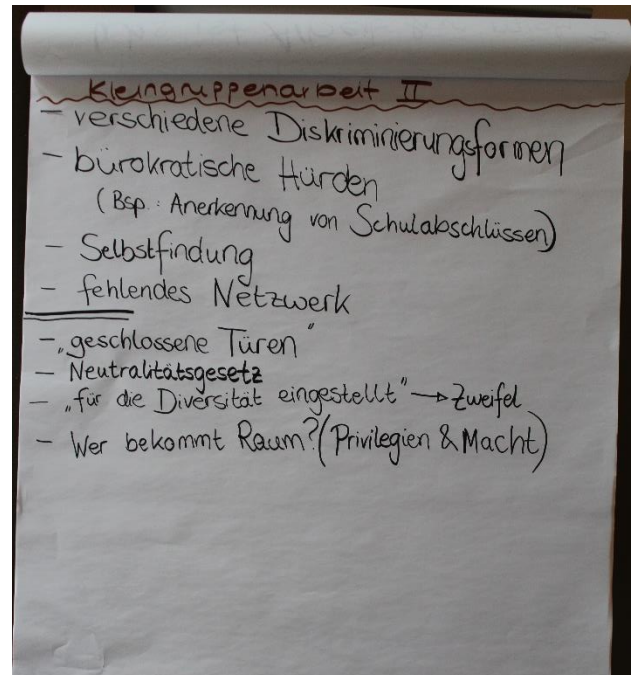 Kleingruppenarbeit II
- verschiedene Diskriminierungsformen
- bürokratische Hürden
(Bsp.: Anerkennung von Schulabschlüssen)
- Selbstfindung
- fehlendes Netzwerk
- „geschlossene Türen"
- Neutralitätsgesetz
- „für die Diversität eingestellt" → Zweifel
- Wer bekommt Raum? (Privilegien & Macht)